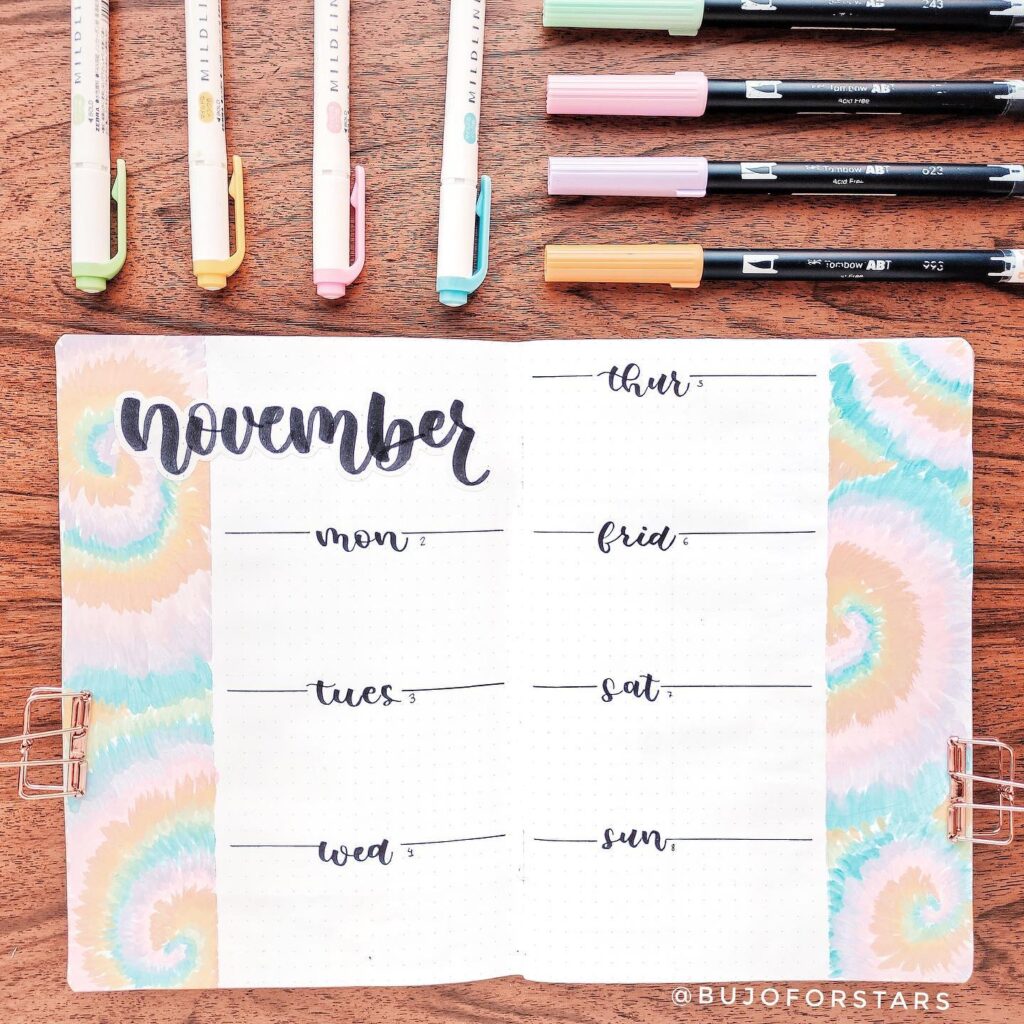 MILDLINE
ZEBRA
MILDLINE
MILDLINE
MILDLINE
243
Tombow ABT
Acid Free
Tombow ABT 623
Acid Free
Tombow ABT 993
november
mon 2
tues 3
wed 4
thur 5
frid 6
sat 7
sun 8
@BUJOFORSTARS